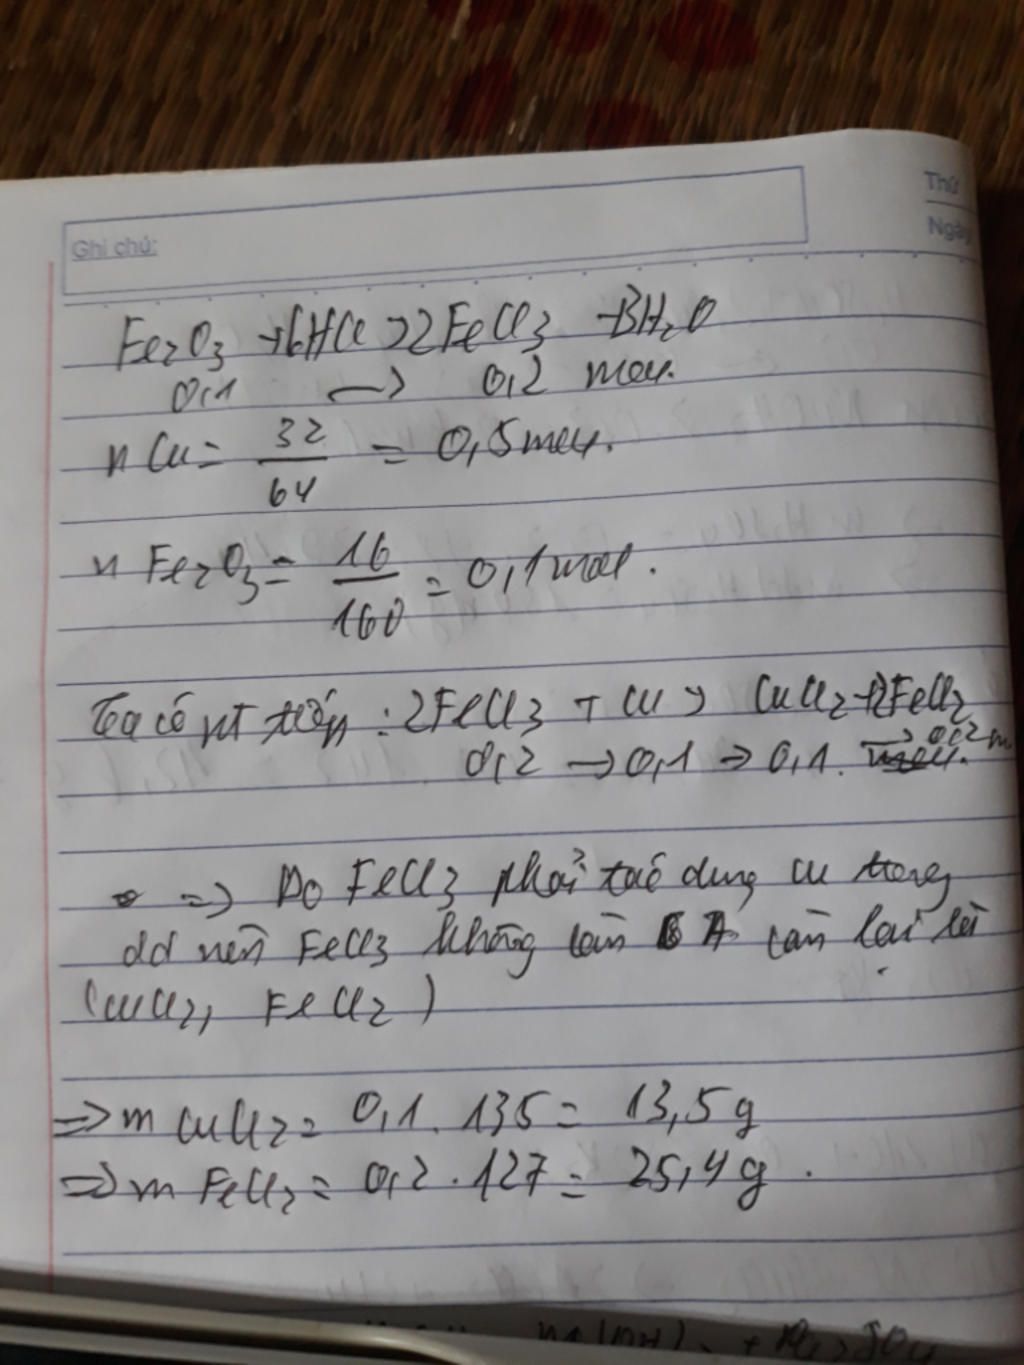 Thứ
Ngày
Ghi chú:
Fe2O3 +6HCl → 2FeCl3 + 3H2O
0,1 → 0,2 mol.
n Cu = 32/64 = 0,5 mol.
n Fe2O3 = 16/160 = 0,1 mol.
Ta có pt : 2FeCl3 + Cu → CuCl2 + 2FeCl2
0,2 → 0,1 → 0,1. → 0,2 m
=> Do FeCl3 phải tác dụng Cu trong
dd nên FeCl3 không còn A còn lại là
(CuCl2, FeCl2)
=> m CuCl2 = 0,1 . 135 = 13,5 g
=> m FeCl2 = 0,2 . 127 = 25,4 g .